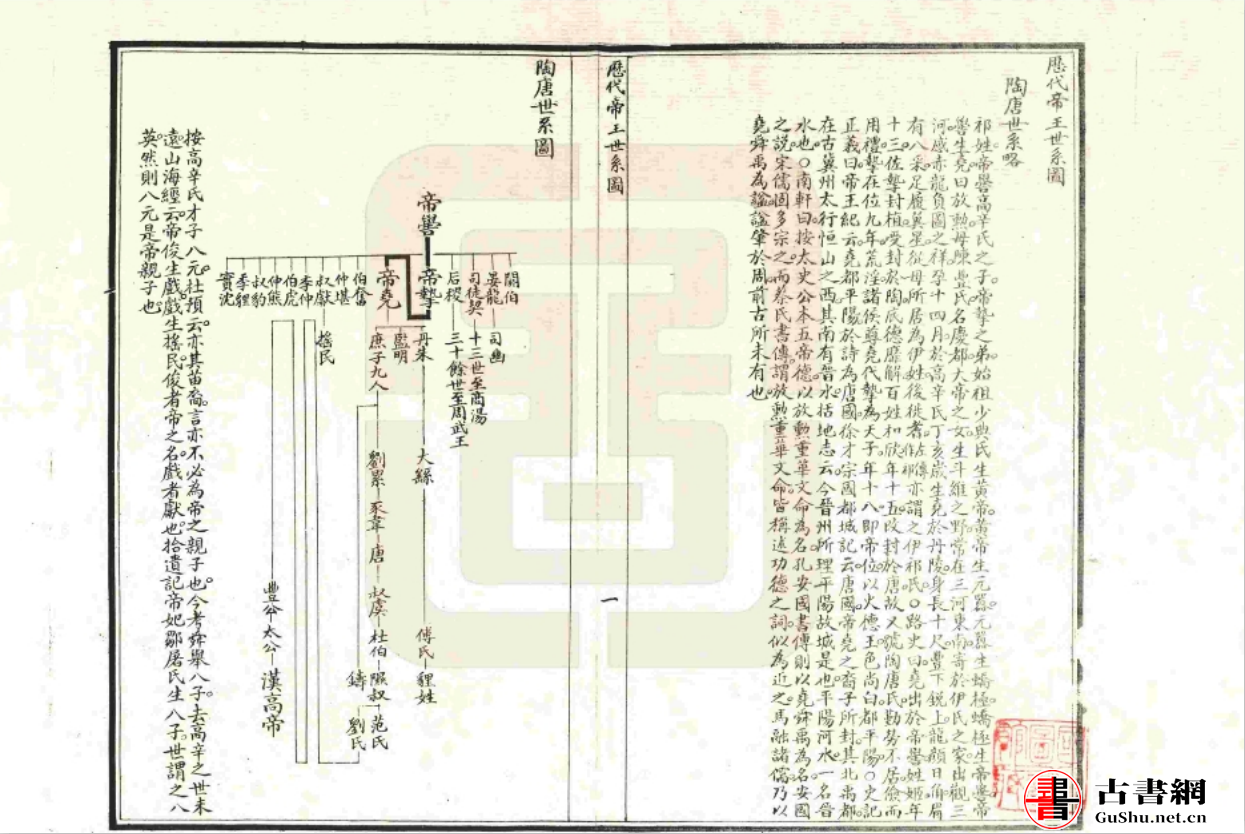 歷代帝王世系圖
陶唐世系略
祁姓帝嚳高辛氏之子帝摯之弟始祖少典氏生黃帝黃帝生元囂元囂生蟜極蟜極生帝嚳帝
嚳生堯曰放勲母陳豐氏名慶都大帝之女生斗維之野常在三河東南寄於伊氏之家出觀三
河感赤龍負圖之祥孕十四月於高辛氏丁亥歲生堯於丹陵身長十尺豐下銳上龍顏日角眉
有八采足履翼星從母所居為伊姓後徙耆故亦謂之伊祁氏○路史曰堯出於帝嚳姬年
十三佐摯封植受封於陶底德靡解百姓和欣年十五改封於唐故又號陶唐氏勤勞不居儉而
用禮摯在位九年荒淫諸侯尊堯代摯為天子年十八即帝位以火德王色尚白都平陽○史記
正義曰帝王紀云堯都平陽於詩為唐國徐才宗國都城記云唐國帝堯之裔子所封其北帝都
在古冀州太行恒山之西其南有晉水括地志云今晉州所理平陽故城是也平陽河水一名晉
水也○南軒曰按太史公本五帝德以放勲重華文命為名孔安國書傳則以堯舜禹為名安國
之說宋儒固多宗之而蔡氏書傳謂放勲重華文命皆稱述功德之詞似為近之馬融諸儒乃以
堯舜禹為謚謚肇於周前古所未有也
歷代帝王世系圖
一
陶唐世系圖
帝嚳
閼伯
晏龍
司幽
司徒契
十三世至商湯
后稷
三十餘世至周武王
帝摯
帝堯
丹朱
大繇
傅氏
貍姓
監明
庶子九人
劉累
豕韋
唐
叔虞
杜伯
隰叔
范氏
劉氏
伯奮
仲堪
叔獻
搖民
季仲
伯虎
仲熊
叔豹
季貍
實沈
豐公
太公
漢高帝
按高辛氏才子八元杜預云亦其苗裔言亦不必為帝之親子也今考舜舉八子去高辛之世未
遠山海經云帝俊生戲戲生搖民俊者帝之名戲者獻也拾遺記帝妃鄒屠氏生八子世謂之八
英然則八元是帝親子也
書
古書網
GuShu.net.cn